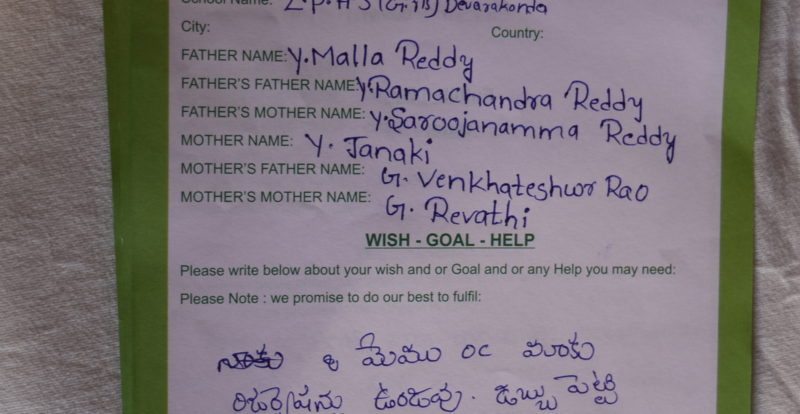 School Name: Z.P.H.S (G.TB) Devarakonda
City: Country:
FATHER NAME: Y. Malla Reddy
FATHER'S FATHER NAME: Y. Ramachandra Reddy
FATHER'S MOTHER NAME: Y. Saroojanamma Reddy
MOTHER NAME: Y. Janaki
MOTHER'S FATHER NAME: G. Venkhateshwor Rao
MOTHER'S MOTHER NAME: G. Revathi
WISH - GOAL - HELP
Please write below about your wish and or Goal and or any Help you may need:
Please Note : we promise to do our best to fulfil:
మేము OC మాకు
రిజర్వేషన్లు ఉండవు. డబ్బు పెట్టి